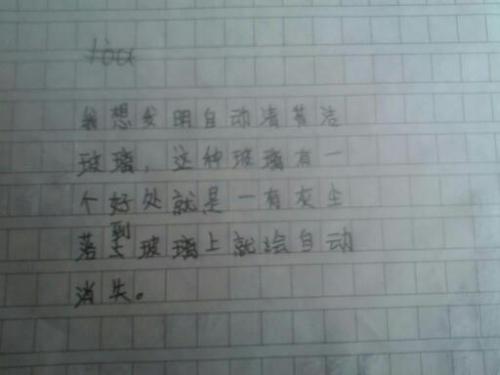 我想发明自动清洁
玻璃，这种玻璃有一
个好处就是一有灰尘
落到玻璃上就会自动
消失。